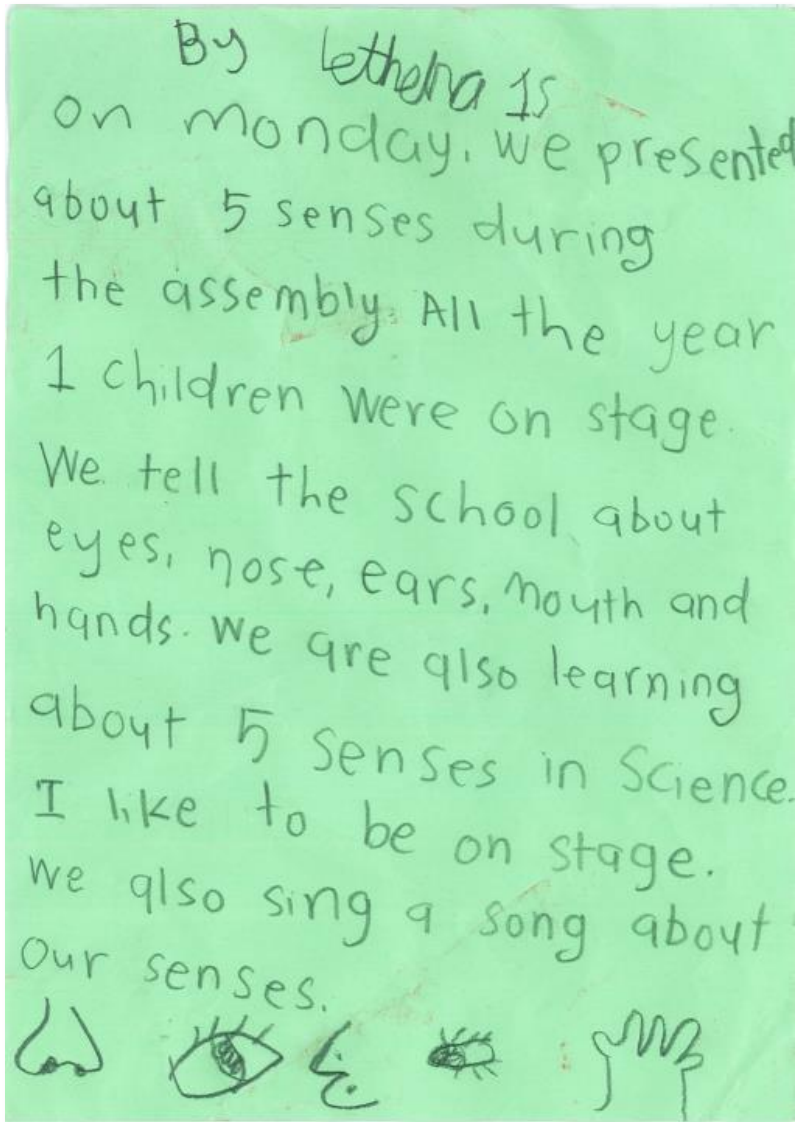 By 1S
on monday, we presented
about 5 senses during
the assembly. All the year
1 children were on stage.
We tell the school about
eyes, nose, ears, mouth and
hands. We are also learning
about 5 senses in Science.
I like to be on stage.
We also sing a song about
our senses.